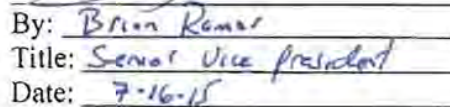 By: Brian Ramos
Title: Senior Vice President
Date: 7-16-15